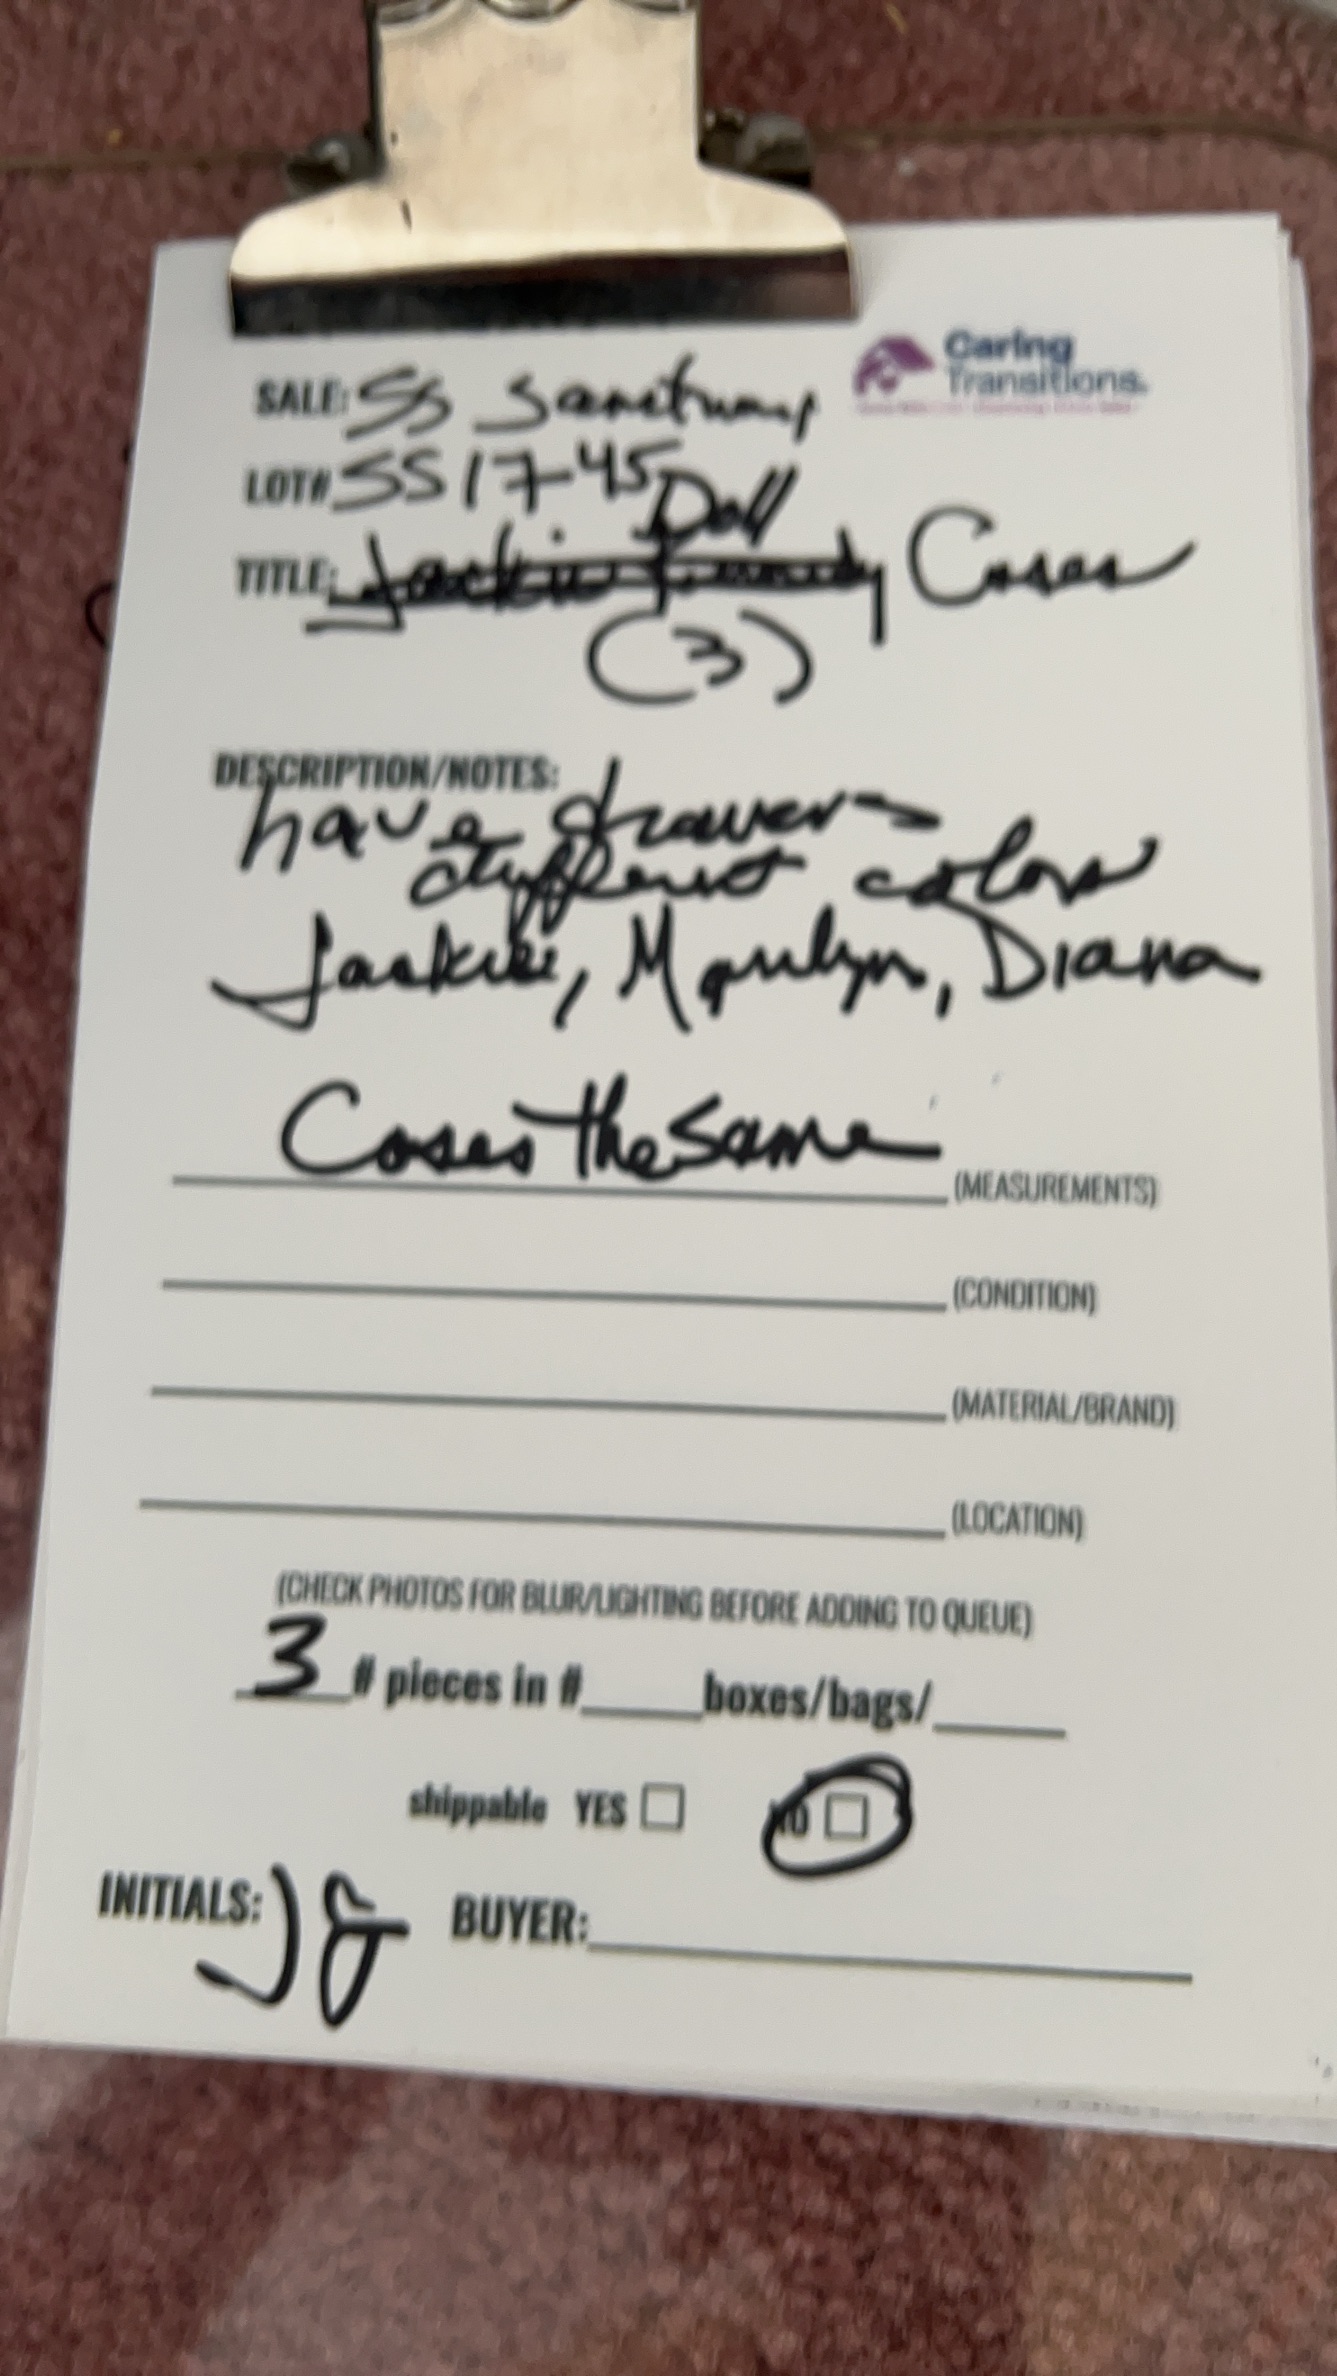 Caring
Transitions.
SALE: SS Sanctuary
LOT# SS17-45
Doll
TITLE: Jackie Kennedy Cases
(3)
DESCRIPTION/NOTES:
have drawers
different colors
Jackie, Marilyn, Diana
Cases the same
(MEASUREMENTS)
(CONDITION)
(MATERIAL/BRAND)
(LOCATION)
(CHECK PHOTOS FOR BLUR/LIGHTING BEFORE ADDING TO QUEUE)
3 # pieces in #____boxes/bags/____
shippable YES ☐ NO ☐
INITIALS: JG BUYER: